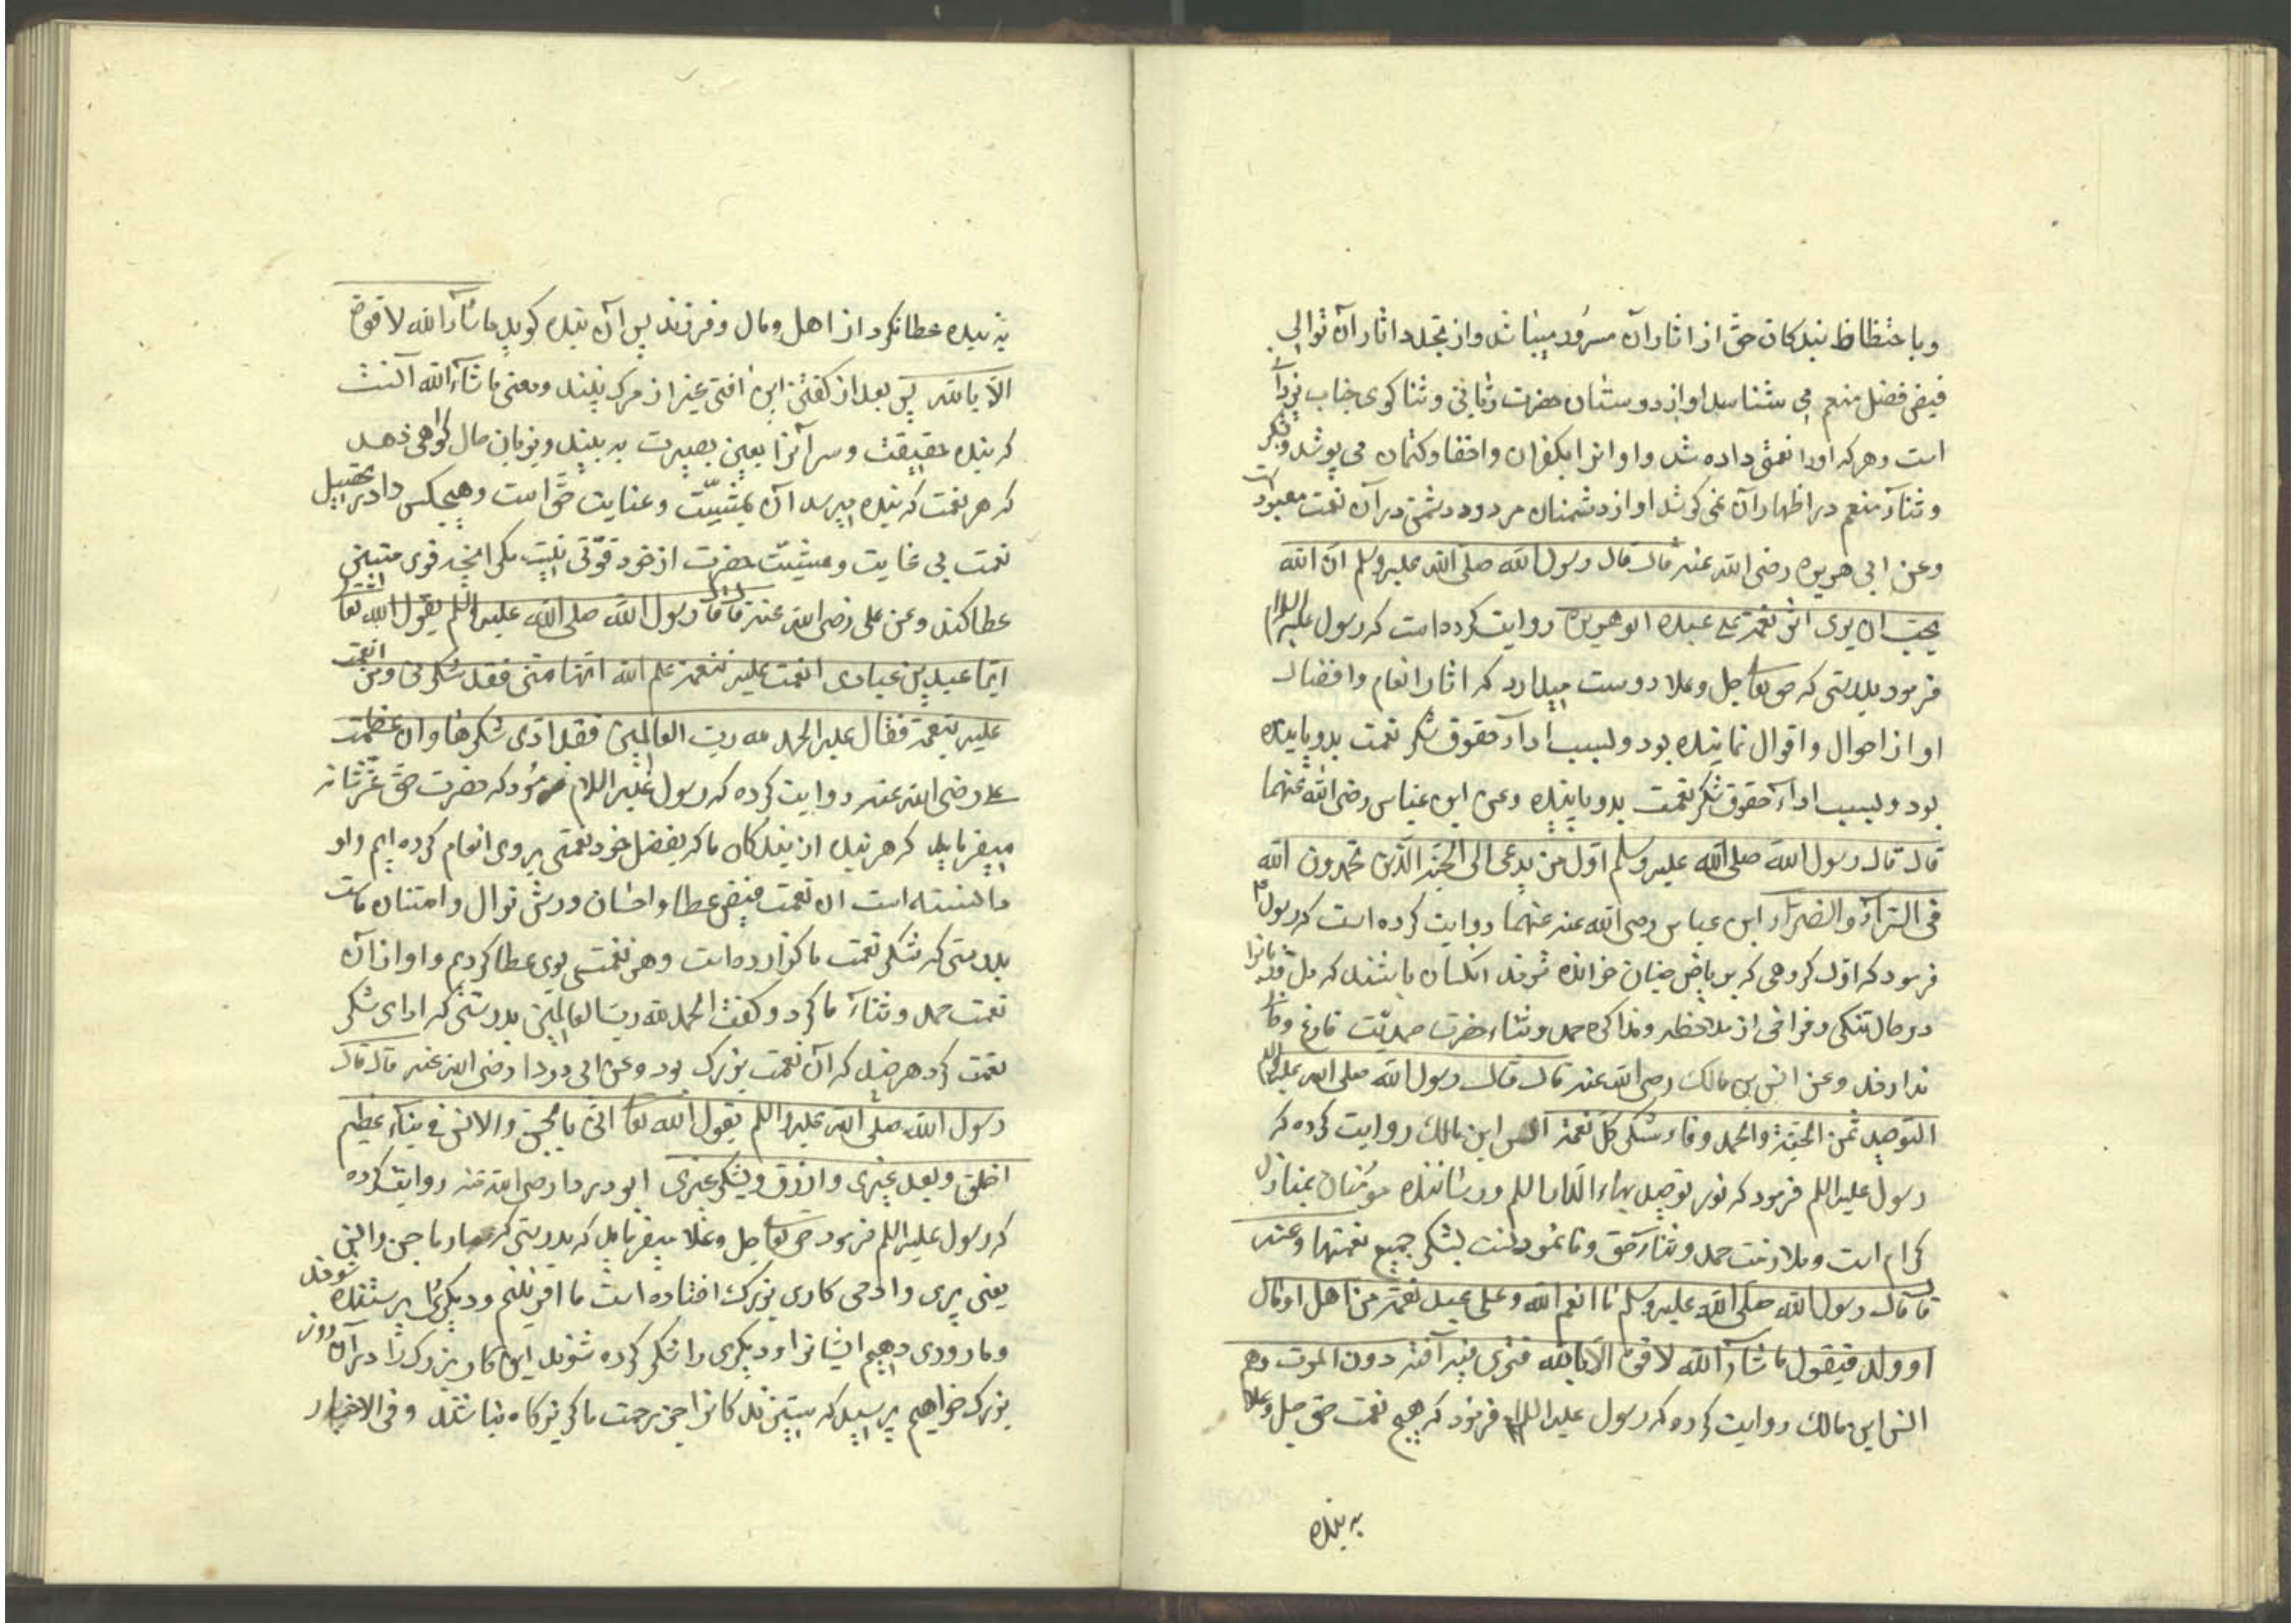 وباحتظاظ بندکان حق از اثار آن مسرور میباشد واز تجدد اثار آن توالی
فیض فضل منعم می شناسد او از دوستان حضرت ربانی و ثنا کوی جناب یزدا
است وهر که اورا نعمتی داده شد واو انرا بکفران واخفا وکتمان می پوشد وبشکر
وثناء منعم در اظهار آن نمی کوشد او از دشمنان مردود دشمتی در آن نعمت معبود است
وعن ابی هریره رضی الله عنه قال قال رسول الله صلی الله علیه وسلم ان الله
یحب ان یری اثر نعمته علی عبده ابو هریره روایت کرده است که رسول علیه السلام
فرمود بدرستی که حق تعا جل وعلا دوست میدارد که اثار انعام وافضال
او از احوال واقوال نماینده بود وبسبب اداء حقوق شکر نعمت بدو پاینده
بود وبسبب اداء حقوق شکر نعمت بدو پاینده وعن ابن عباس رضی الله عنهما
قال قال رسول الله صلی الله علیه وسلم اول من یدعی الی الجنة الذین یحمدون الله
فی السراء والضراء ابن عباس رضی الله عنه عنهما روایت کرده است که رسول
فرمود که اول کروهی که بریاض جنان خوانده شوند انکسان باشند که دل
در حال تنکی وفراخی از ملاحظه ومذاکره حمد وثناء حضرت صمدیت فارغ
ندارند وعن انس بن مالک رضی الله عنه قال قال رسول الله صلی الله علیه والسلم
التوحید ثمن الجنة والحمد وفاء شکر کل نعمة انس ابن مالک روایت کرده که
رسول علیه السلم فرمود که نور توحید بهاء الدار السلم ورساننده مومنان بمنازل
کرام است وملازمت حمد وثناء حق وفا نمودنست بشکر جمیع نعمتها وعنه
قا قال رسول الله صلی الله علیه وسلم ما انعم الله وعلی عبد نعمة من اهل او مال
او ولد فیقول ما شاء الله لا قوة الا بالله فیری فیه آفة دون الموت وهم
انس ابن مالک روایت کرده که رسول علیه السلام فرمود که هیچ نعمت حق جل وعلا
به بنده
به بنده عطا نکرد از اهل ومال وفرزند پس آن بنده کوید ما شاء الله لا قوة
الا بالله پس بعد از کفتن این افتی غیر از مرک بیند ومعنی ما شاء الله آنست
که بنده حقیقت وسر آنرا بعین بصیرت به بیند وبزبان حال کواهی دهد
که هر نعمت که بنده میرسد آن بمشیت وعنایت حق است وهیچکس را در تحصیل
نعمت بی غایت ومشیت حضرت از خود قوتی نیست مکر انچه قوی متین
عطا کند وعن علی رضی الله عنه قا قا رسول الله صلی الله علیه والسلم یقول الله تعا
ایما عبد من عبادی انعمت علیه نعمة علم الله انها منی فقد شکرنی ومن انعمت
علیه بنعمة فقال علیه الحمد لله رب العالمین فقد ادی شکرها وان عظمت
علی رضی الله عنه روایت کرده که رسول علیه السلام فرمود که حضرت حق عز شانه
میفرماید که هر بنده از بندکان ما که بفضل خود نعمتی بر وی انعام کرده ایم واو
دانسته است ان نعمت فیض عطا واحسان ورش نوال وامتنان ماست
بدرستی که شکر نعمت ما کزارده است وهر نعمت بوی عطا کردیم واو از آن
نعمت حمد وثناء ما کرد وکفت الحمد لله رب العالمین بدرستی که ادای شکر
نعمت کرد هر چند که آن نعمت بزرک بود وعن ابی دردا رضی الله عنه قال قال
رسول الله صلی الله علیه والسلم یقول الله تعا انی یا لجن والانس فی بناء عظیم
اخلق ویعبد غیری وارزق ویشکر غیری ابو دردا رضی الله عنه روایت کرده
که رسول علیه السلم فرمود حق تعا جل وعلا میفرماید که بدرستی که مارا با جن وانس
یعنی پری وادمی کاری بزرک افتاده است ما افرینیم ودیکری پرستنده شوند
وما روزی دهیم ایشانرا ودیکری را شکر کرده شوند این کار بزرک را در آن روز
بزرک خواهیم پرسید که ستیزندکانرا جز رحمت ما کریزکاه نباشد وفی الاخبار